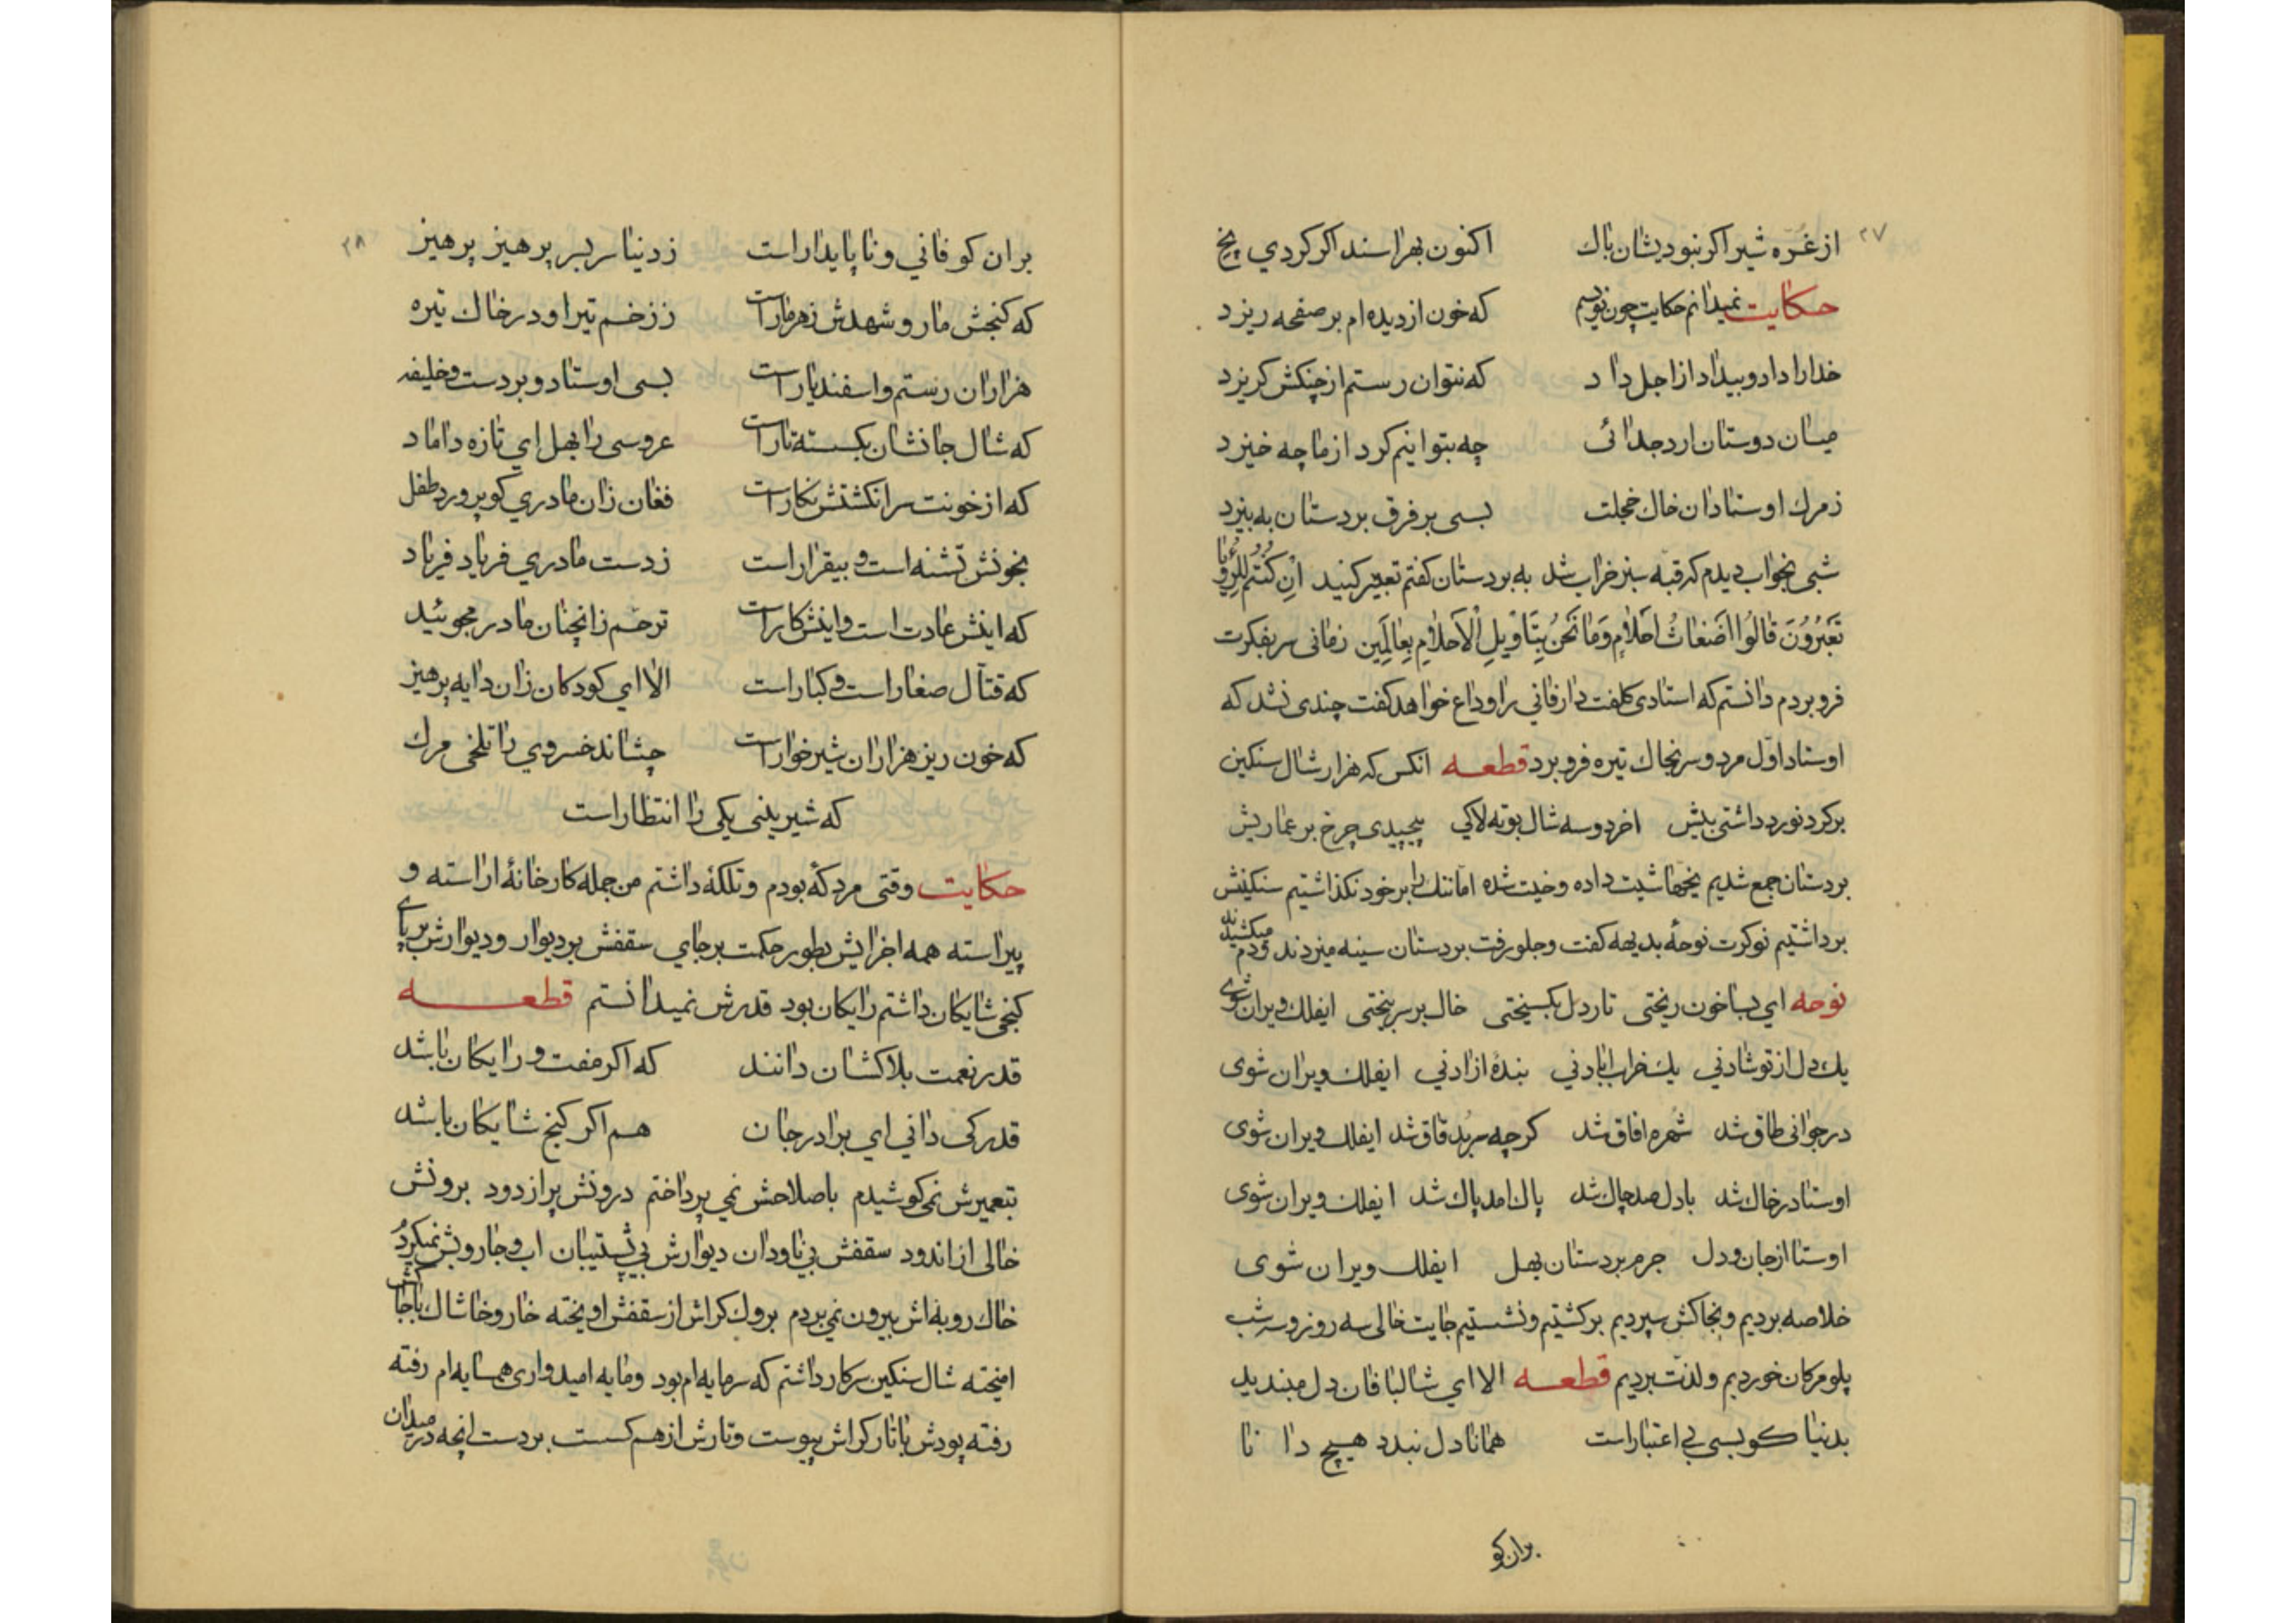 ۲۷
از غُرّه شیر اکر نبود یشان باك اکنون بهراسند اکر کردي پخ
حکایت نمیدانم حکایت چون نویسم که خون از دیده ام بر صفحه ریزد
خدارا داد و بیداد از اجل داد که نتوان رستم از چنکش کریزد
میان دوستان ارد جدائی چه بتوانیم کرد از ما چه خیزد
ز مرك اوستادان خاك خجلت بسی بر فرق بردستان به بیزد
شبی بخواب دیدم که قبه سبز خراب شد به بردستان کفتم تعبیر کنید اِنْ کُنْتُم لِلرُّءْیا
تَعْبُرُونَ قالُوا اَضْغاثُ اَحْلامٍ وَما نَحْنُ بِتَأْویلِ الْاَحْلامِ بِعالِمین زمانی سر بفکرت
فرو بردم دانستم که استادی کلفت دار فانی را وداع خواهد کفت چندی نشد که
اوستاد اوّل مرد و سر بخاك تیره فرو برد قطعه انکس که هزار شال سنکین
بر کرد نورد داشتی پیش اخر دو سه شال بوته لاکي پیچیدی چرخ بر عماریش
بردستان جمع شدیم یخها شیت داده وخیت شده امانتك را بر خود نکذاشتیم سنکینش
برداشتیم نوکرت نوحهٔ بدیهه کفت وجلو رفت بردستان سینه میزدند ودم میکشیدند
نوحه اي بسا خون ریختی تار دل بکسیختی خاك بر سر بیختی ایفلك ویران شوی
یك دل از تو شاد ني یك خراب اباد ني بندهٔ ازاد ني ایفلك ویران شوی
در جوانی طاق شد شهره افاق شد کرچه سر بُد قاق شد ایفلك ویران شوی
اوستا در خاك شد با دل صد چاك شد پاك امد پاك شد ایفلك ویران شوی
اوستا از جان و دل جرم بردستان بهل ایفلك ویران شوی
خلاصه بردیم و بخاکش سپردیم برکشتیم و نشستیم جایت خالی سه روز و سه شب
پلو مرکان خوردیم و لذّت بردیم قطعه الا اي شالبافان دل مبندید
بدنیا کو بسی بی اعتبار است همانا دل نبندد هیچ دانا
بران کو
۲۸
بران کو فاني و نا پایدار است ز دنیا سر بسر پرهیز پرهیز
که کنجش مار و شهدش زهرمار است ز زخم تیر او در خاك تیره
هزاران رستم و اسفندیار است بسی اوستاد و بردست و خلیفه
که شال جانشان بکسسته تار است عروسی را بهل اي تازه داماد
که از خونت سر انکشتش نکار است فغان زان مادري کو پرورد طفل
بخونش تشنه است و بیقرار است ز دست مادري فریاد فریاد
که اینش عادت است و اینش کار است ترحّم زانچنان مادر مجوئید
که قتال صغار است و کبار است الا اي کودکان زان دایه پرهیز
که خون ریز هزاران شیرخوار است چشاند خسروي را تلخی مرك
که شیرینی یکی را انتظار است
حکایت وقتی مردکهٔ بودم و تلکهٔ داشتم من جمله کارخانهٔ اراسته و
پیراسته همه اجزایش بطور حکمت بر جاي سقفش بر دیوار و دیوارش بر پاي
کنجی شایکان داشتم رایکان بود قدرش نمیدانستم قطعه
قدر نعمت بلاکشان دانند که اکر مفت و رایکان باشد
قدر کی داني اي برادر جان هم اکر کنج شایکان باشد
بتعمیرش نمی کوشیدم باصلاحش نمي پرداختم درونش پر از دود برونش
خالی از اندود سقفش بي ناودان دیوارش بي پشتیبان اب و جاروبش نمیکردم
خاك روبه اش بیرون نمي بردم بروك کراش از سقفش اویخته خار و خاشاك باجاکش
امیخته شال سنکین سر کار داشتم که سرمایه ام بود و مایه امیدواری همسایه ام رفته
رفته پودش با تار کراش پیوست و تارش از هم کسست بردست انچه در میدان